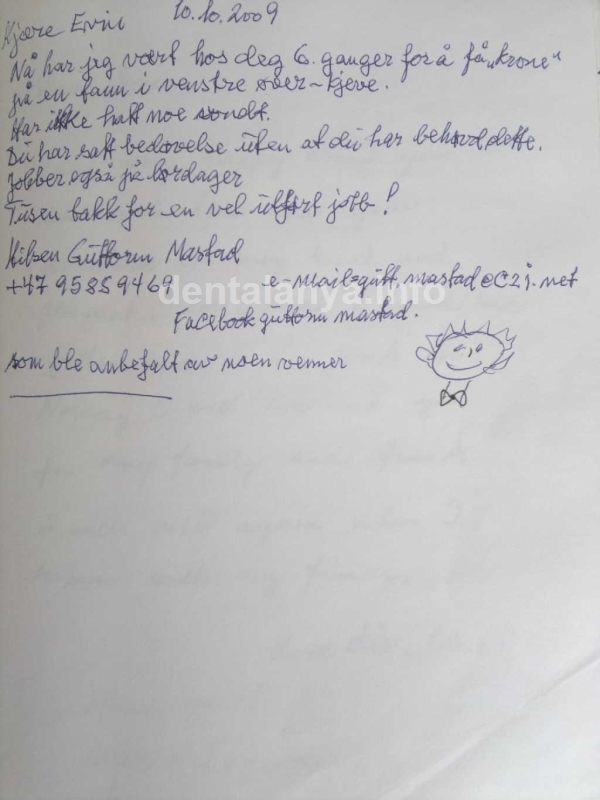 Kjære Ervin 10.10.2009
Nå har jeg vært hos deg 6. ganger for å få „krone"
på en tann i venstre over-kjeve.
Har ikke hatt noe vondt.
Du har satt bedøvelse uten at du har behøvd dette.
Jobber også på lørdager
Tusen takk for en vel utført jobb!
Hilsen Guttorm Mastad
+47 95859469 e-mail=gutt.mastad@c2i.net
dentalanya.info
Facebook guttorm mastad.
som ble anbefalt av noen venner